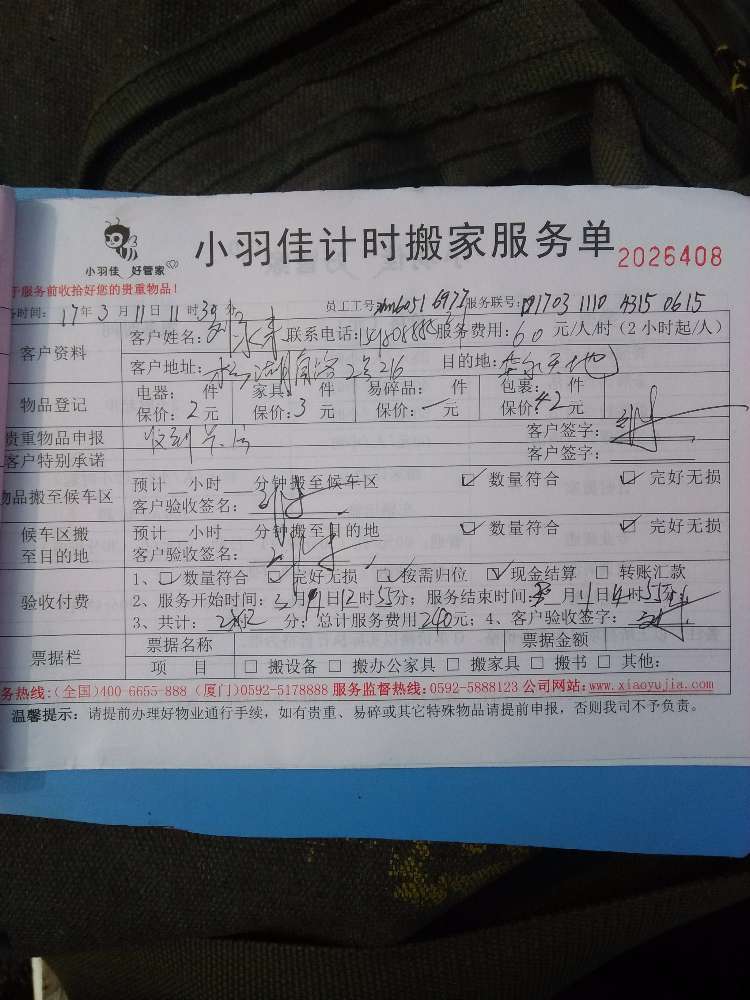 小羽佳 好管家
小羽佳计时搬家服务单 2026408
于服务前收拾好您的贵重物品！
务时间：17年3月11日11时39分 员工工号： 6977 服务联号：01703 1110 4315 0615
客户资料 客户姓名： 联系电话： 服务费用：60元/人/时（2小时起/人）
客户地址： 目的地：
物品登记 电器： 件 家具： 件 易碎品： 件 包裹： 件
保价：2元 保价：3元 保价：一元 保价：42元
贵重物品申报 客户签字：
客户特别承诺 客户签字：
物品搬至候车区 预计 小时 分钟搬至候车区 ☑数量符合 ☑完好无损
客户验收签名：
候车区搬至目的地 预计 小时 分钟搬至目的地 ☑数量符合 ☑完好无损
客户验收签名：
验收付费 1、☑数量符合 ☑完好无损 ☑按需归位 ☑现金结算 □转账汇款
2、服务开始时间：3月11日12时55分；服务结束时间：3月11日14时55分；
3、共计：2×2 分；总计服务费用240元；4、客户验收签字：
票据栏 票据名称 票据金额
项 目 □搬设备 □搬办公家具 □搬家具 □搬书 □其他：
务热线：（全国）400-6655-888（厦门）0592-5178888 服务监督热线：0592-5888123 公司网站：www.xiaoyujia.com
温馨提示：请提前办理好物业通行手续，如有贵重、易碎或其它特殊物品请提前申报，否则我司不予负责。